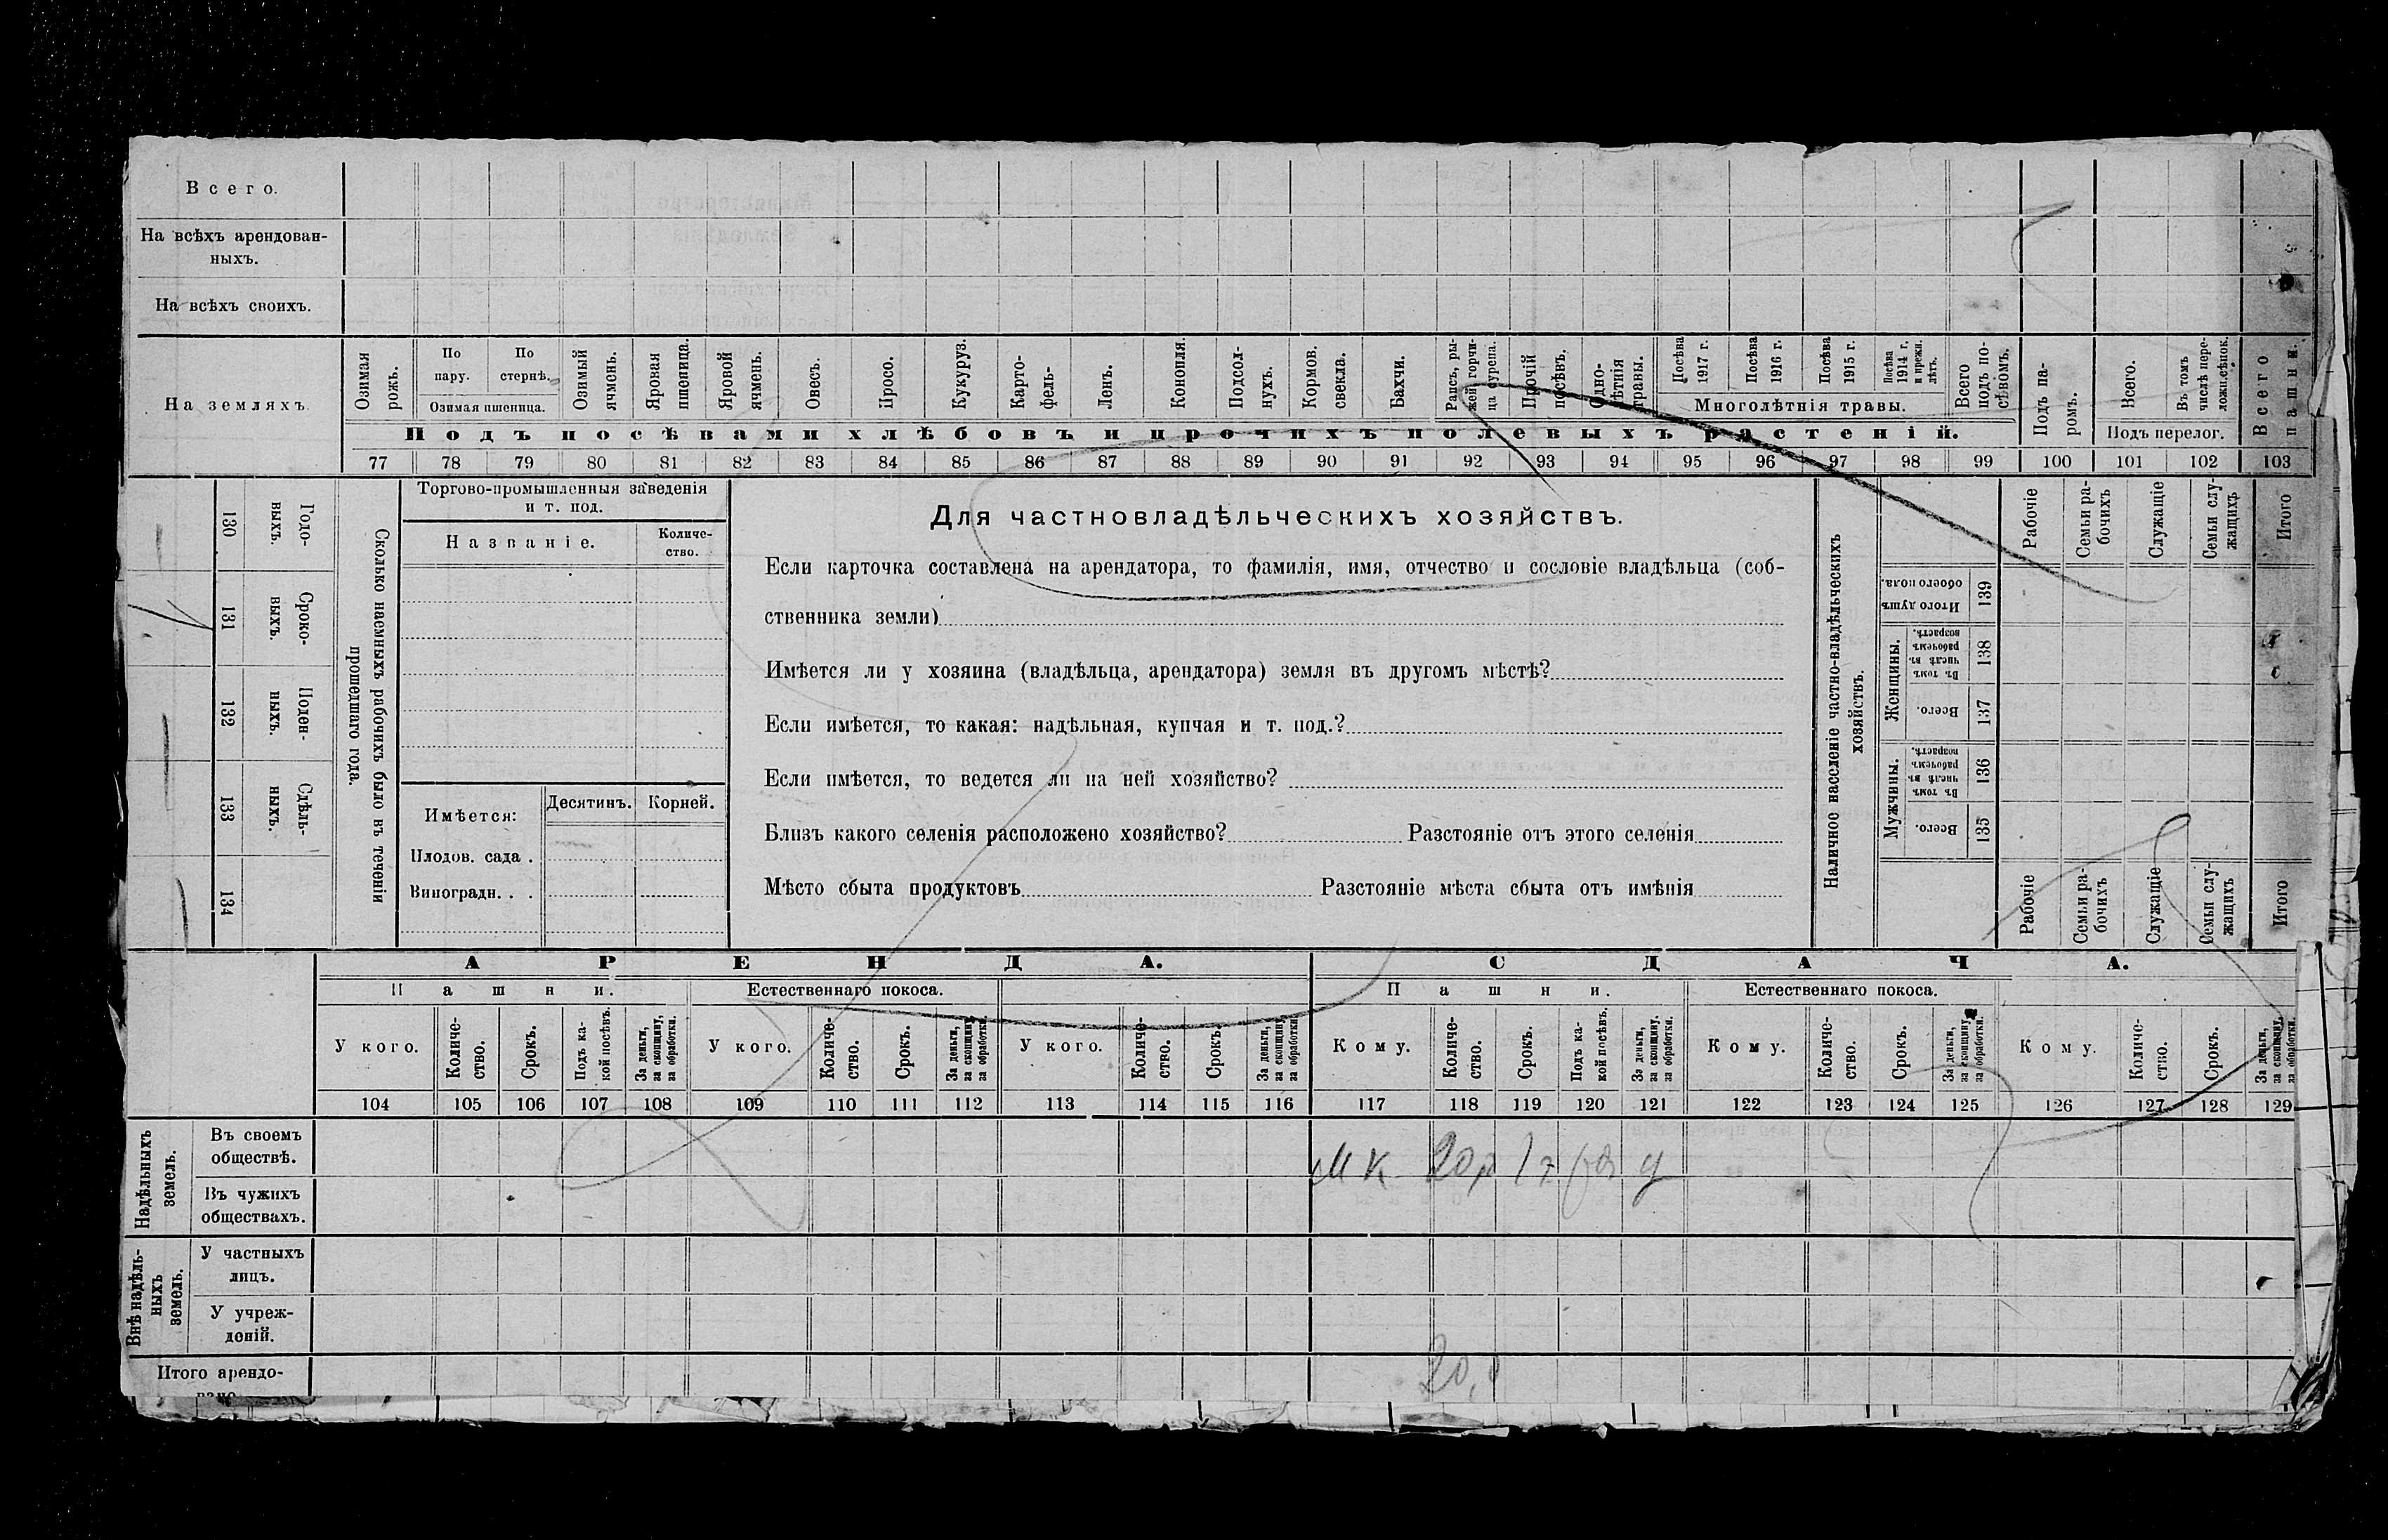 Всего.
На всѣхъ арендован-
ныхъ.
На всѣхъ своихъ.
На земляхъ
Озимая рожь.
По пару.
По стернѣ.
Озимая пшеница.
Озимый ячмень.
Яровая пшеница.
Яровой ячмень.
Овесъ.
Просо.
Кукуруз.
Карто-
фель-
Ленъ.
Конопля.
Подсол-
нухъ.
Кормов.
свекла.
Бахчи.
Рапсъ, ры-
жей, горчи-
ца сурепа.
Прочій
посѣвъ.
Одно-
лѣтнія
травы.
Посѣва
1917 г.
Посѣва
1916 г.
Посѣва
1915 г.
Посѣва
1914 г.
и прежн.
лѣтъ.
Многолѣтнія травы.
Всего
подъ по-
сѣвомъ.
Подъ па-
ромъ.
Всего.
Въ томъ
числѣ пере-
ложн.сѣнок.
Подъ перелог.
Всего
пашни.
Подъ посѣвами хлѣбовъ и прочихъ полевыхъ растеній.
77 78 79 80 81 82 83 84 85 86 87 88 89 90 91 92 93 94 95 96 97 98 99 100 101 102 103
130 Годо-
выхъ.
131 Сроко-
выхъ.
132 Поден-
ныхъ.
133 Сдѣль-
ныхъ.
134
Сколько наемныхъ рабочихъ было въ теченіи
прошедшаго года.
Торгово-промышленныя заведенія
и т. под.
Названіе.
Количе-
ство.
Имѣется:
Десятинъ.
Корней.
Плодов. сада .
Виноградн. . .
Для частновладѣльческихъ хозяйствъ.
Если карточка составлена на арендатора, то фамилія, имя, отчество и сословіе владѣльца (соб-
ственника земли)
Имѣется ли у хозяина (владѣльца, арендатора) земля въ другомъ мѣстѣ?
Если имѣется, то какая: надѣльная, купчая и т. под.?
Если имѣется, то ведется ли на ней хозяйство?
Близъ какого селенія расположено хозяйство? Разстояніе отъ этого селенія
Мѣсто сбыта продуктовъ Разстояніе мѣста сбыта отъ имѣнія
Наличное населеніе частно-владѣльческихъ
хозяйствъ.
Рабочіе
Семьи ра-
бочихъ
Служащіе
Семьи слу-
жащихъ
Итого
Итого душъ
обоего пола.
139
Женщины.
Въ томъ
числѣ въ
рабочемъ
возрастѣ.
138
Всего.
137
Мужчины.
Въ томъ
числѣ въ
рабочемъ
возрастѣ.
136
Всего.
135
Рабочіе
Семьи ра-
бочихъ
Служащіе
Семьи слу-
жащихъ
Итого
АРЕНДА.
СДАЧА.
Пашни.
Естественнаго покоса.
Пашни.
Естественнаго покоса.
У кого.
Количе-
ство.
Срокъ.
Подъ ка-
кой посѣвъ.
За деньги,
за скопщину,
за обработки.
У кого.
Количе-
ство.
Срокъ.
За деньги,
за скопщину,
за обработки.
У кого.
Количе-
ство.
Срокъ.
За деньги,
за скопщину,
за обработки.
Кому.
Количе-
ство.
Срокъ.
Подъ ка-
кой посѣвъ.
За деньги,
за скопщину.
за обработки.
Кому.
Количе-
ство.
Срокъ.
За деньги,
за скопщину,
за обработки.
Кому.
Количе-
ство.
Срокъ.
За деньги,
за скопщину,
за обработки.
104 105 106 107 108 109 110 111 112 113 114 115 116 117 118 119 120 121 122 123 124 125 126 127 128 129
Надѣльныхъ
земель.
Въ своемъ
обществѣ.
Въ чужихъ
обществахъ.
Внѣ надѣль-
ныхъ
земель.
У частныхъ
лицъ.
У учреж-
деній.
Итого арендо-
вано